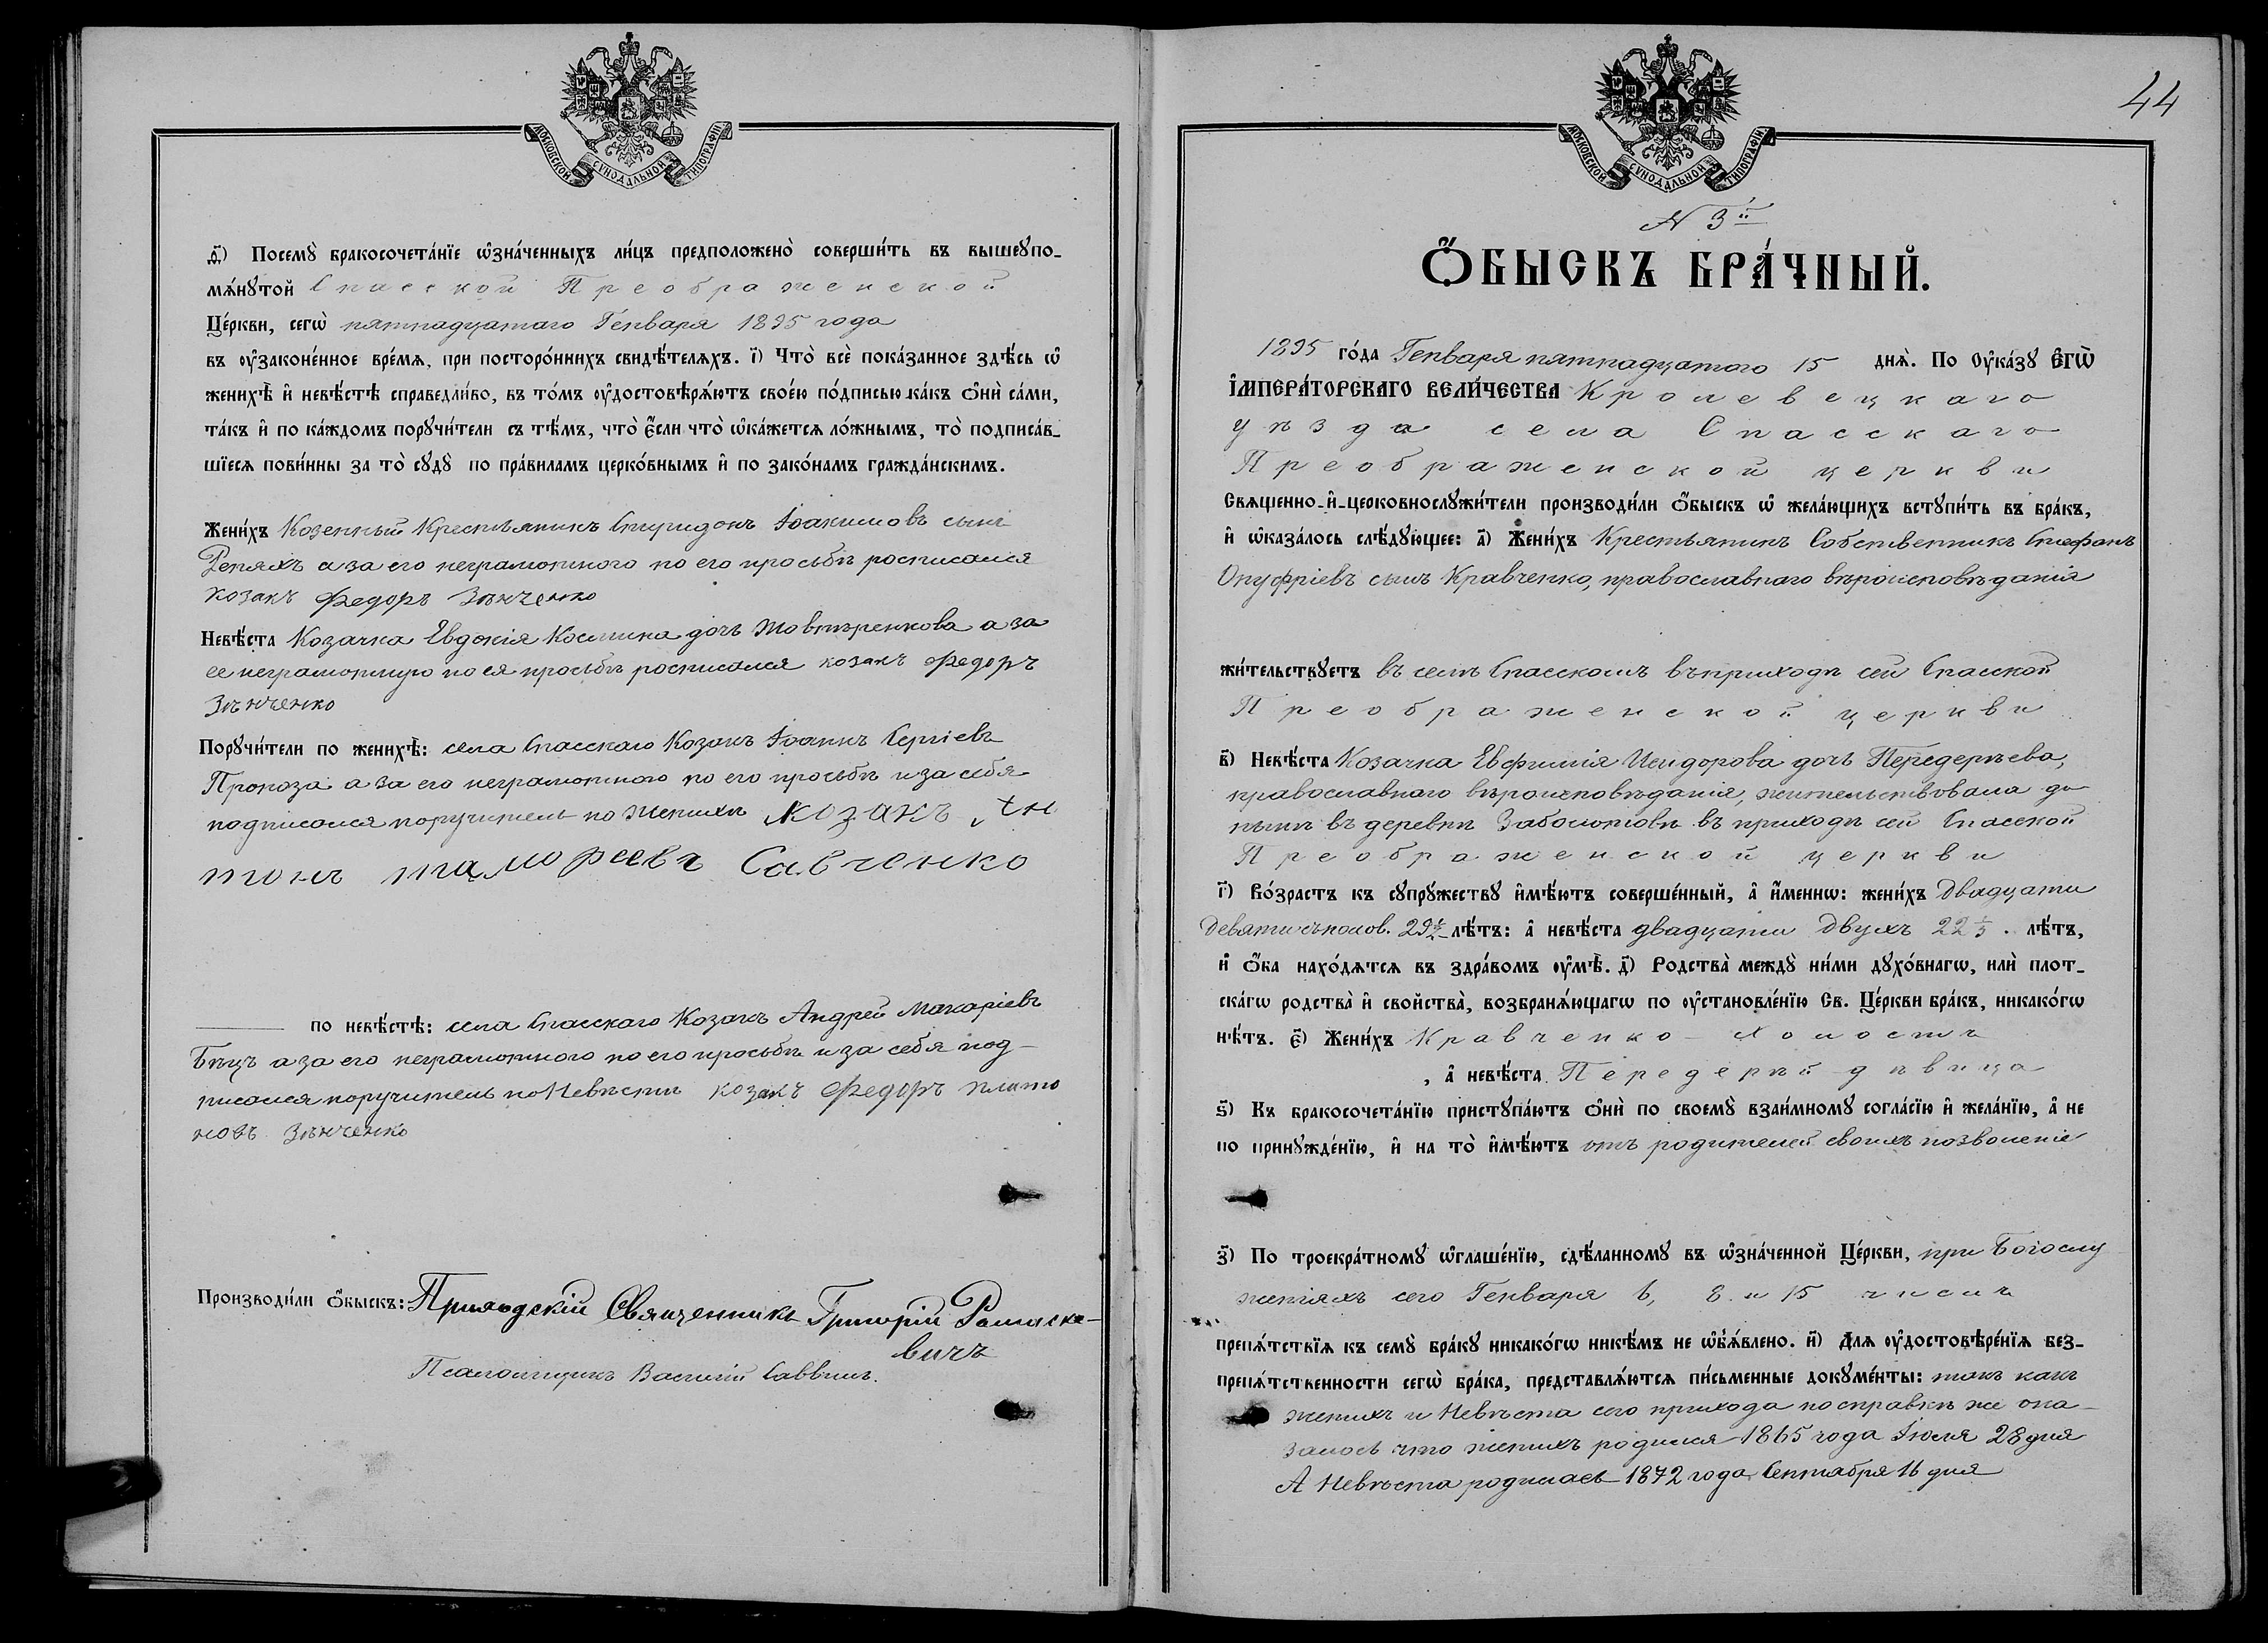 МОСКОВСКОЙ СѴНОДАЛЬНОЙ ТИПОГРАФІИ
ѳ҃) Посемꙋ̀ бракосочета́нїе ѡ҆зна́ченныхъ ли́цъ предположено̀ соверши́ть въ вышеꙋпо-
мѧ́нꙋтой Спасской Преображенской
Це́ркви, сегѡ̀ пятнадцатаго Генваря 1895 года
въ ᲂу҆законе́нное вре́мѧ, при посторо́ннихъ свидѣ́телѧхъ. і҃) Что̀ всѐ пока́занное здѣ́сь ѡ҆
женихѣ̀ и҆ невѣ́стѣ справедли́во, въ то́мъ ᲂу҆достовѣрѧ́ютъ свое́ю по́дписью ка́къ ѻ҆нѝ са́ми,
та́къ и҆ по ка́ждомъ порꙋчи́тели съ тѣ́мъ, что̀ є҆́сли что̀ ѡ҆ка́жетсѧ ло́жнымъ, то̀ подписа́в-
шїесѧ пови́нны за то̀ сꙋдꙋ̀ по пра́виламъ церко́внымъ и҆ по зако́намъ гражда́нскимъ.
Жени́хъ Козенный Крестьянинъ Спиридонъ Іоакимовъ сынъ
Репяхъ а за его неграмотного по его просьбѣ росписался
козакъ Федоръ Зѣнченко
Невѣ́ста Козачка Евдокія Космина дочь Товстѣренкова а за
ее неграмотную по ея просьбѣ росписался козакъ Федоръ
Зѣнченко
Порꙋчи́тели по женихѣ̀: села Спасскаго Козакъ Іоаннъ Сергіевъ
Пропоза а за его неграмотного по его просьбѣ и за себя
подписался поручитель по Женихѣ козакъ Ан
тонъ Тимофеевъ Савченко
по невѣ́стѣ: села Спасскаго Козакъ Андрей Макаріевъ
Бѣцъ а за его неграмотного по его просьбѣ и за себя под-
писался поручитель по Невѣстѣ козакъ Федоръ Плато
новъ Зѣнченко
Производи́ли ѻ҆́быскъ: Приходскій Священникъ Григорій Ромаске-
вичъ
Псаломщикъ Василій Саввинъ.
44
МОСКОВСКОЙ СѴНОДАЛЬНОЙ ТИПОГРАФІИ
N 3й
Ѻ҆́БЫСКЪ БРА́ЧНЫЙ.
1895 го́да Генваря пятнадцатого 15 днѧ̀. По Оу҆ка́зꙋ Є҆гѡ̀
І҆мпера́торскагѡ вели́чества Кролевецкаго
уѣзда села Спасскаго
Преображенской церкви
Свѧщенно-и҆-церковнослꙋжи́тели производи́ли ѻ҆́быскъ ѡ҆ жела́ющихъ встꙋпи́ть въ бра́къ,
и҆ ѡ҆каза́лось слѣ́дꙋющее: а҃) Жени́хъ Крестьянинъ Собственникъ Стефанъ
Онуфріевъ сынъ Кравченко, православнаго вѣроисповѣданія
жи́тельствꙋетъ въ селѣ Спасскомъ въ приходѣ сей Спасской
Преображенской церкви
в҃) Невѣ́ста Козачка Евфимія Исидорова дочь Передерѣева,
православнаго вѣроисповѣданія, жительствовала до
нынѣ въ деревнѣ Заболотовѣ въ приходѣ сей Спасской
Преображенской церкви
г҃) Во́зрастъ къ сꙋпрꙋ́жествꙋ и҆мѣ́ютъ соверше́нный, а҆ и҆́меннѡ: жени́хъ двадцати
девяти съ полов. 29½ лѣ́тъ: а҆ невѣ́ста двадцати двухъ 22⅓. лѣ́тъ,
и҆ ѻ҆́ба нахо́дѧтсѧ въ здра́вомъ ᲂу҆мѣ̀. д҃) Родства̀ междꙋ̀ ни́ми дꙋхо́внагѡ, илѝ плот-
ска́гѡ родства̀ и҆ свойства̀, возбранѧ́ющагѡ по ᲂу҆становле́нїю Св. Це́ркви бра́къ, никако́гѡ
нѣ́тъ. є҃) Жени́хъ Кравченко - холостъ
, а҆ невѣ́ста Передерѣй - дѣвица
ѕ҃) Къ бракосочета́нїю пристꙋпа́ютъ ѻ҆нѝ по своемꙋ̀ взаи́мномꙋ согла́сїю и҆ жела́нїю, а҆ не
по принꙋжде́нїю, и҆ на то̀ и҆мѣ́ютъ отъ родителей своихъ позволеніе
з҃) По троекра́тномꙋ ѡ҆глаше́нїю, сдѣ́ланномꙋ въ ѡ҆зна́ченной Це́ркви, при Богослу
женіяхъ сего Генваря 6, 8. и 15 числъ
препѧ́тствїѧ къ семꙋ̀ бра́кꙋ никако́гѡ никѣ́мъ не ѡ҆б̾ѧ́влено. и҃) Длѧ ᲂу҆достовѣре́нїѧ без-
препѧ́тственности сегѡ̀ бра́ка, представлѧ́ютсѧ пи́сьменные докꙋме́нты: такъ какъ
женихъ и Невѣста сего прихода по справкѣ же ока-
залось что женихъ родился 1865 года Іюля 28 дня
А Невѣста родилась 1872 года Сентября 16 дня